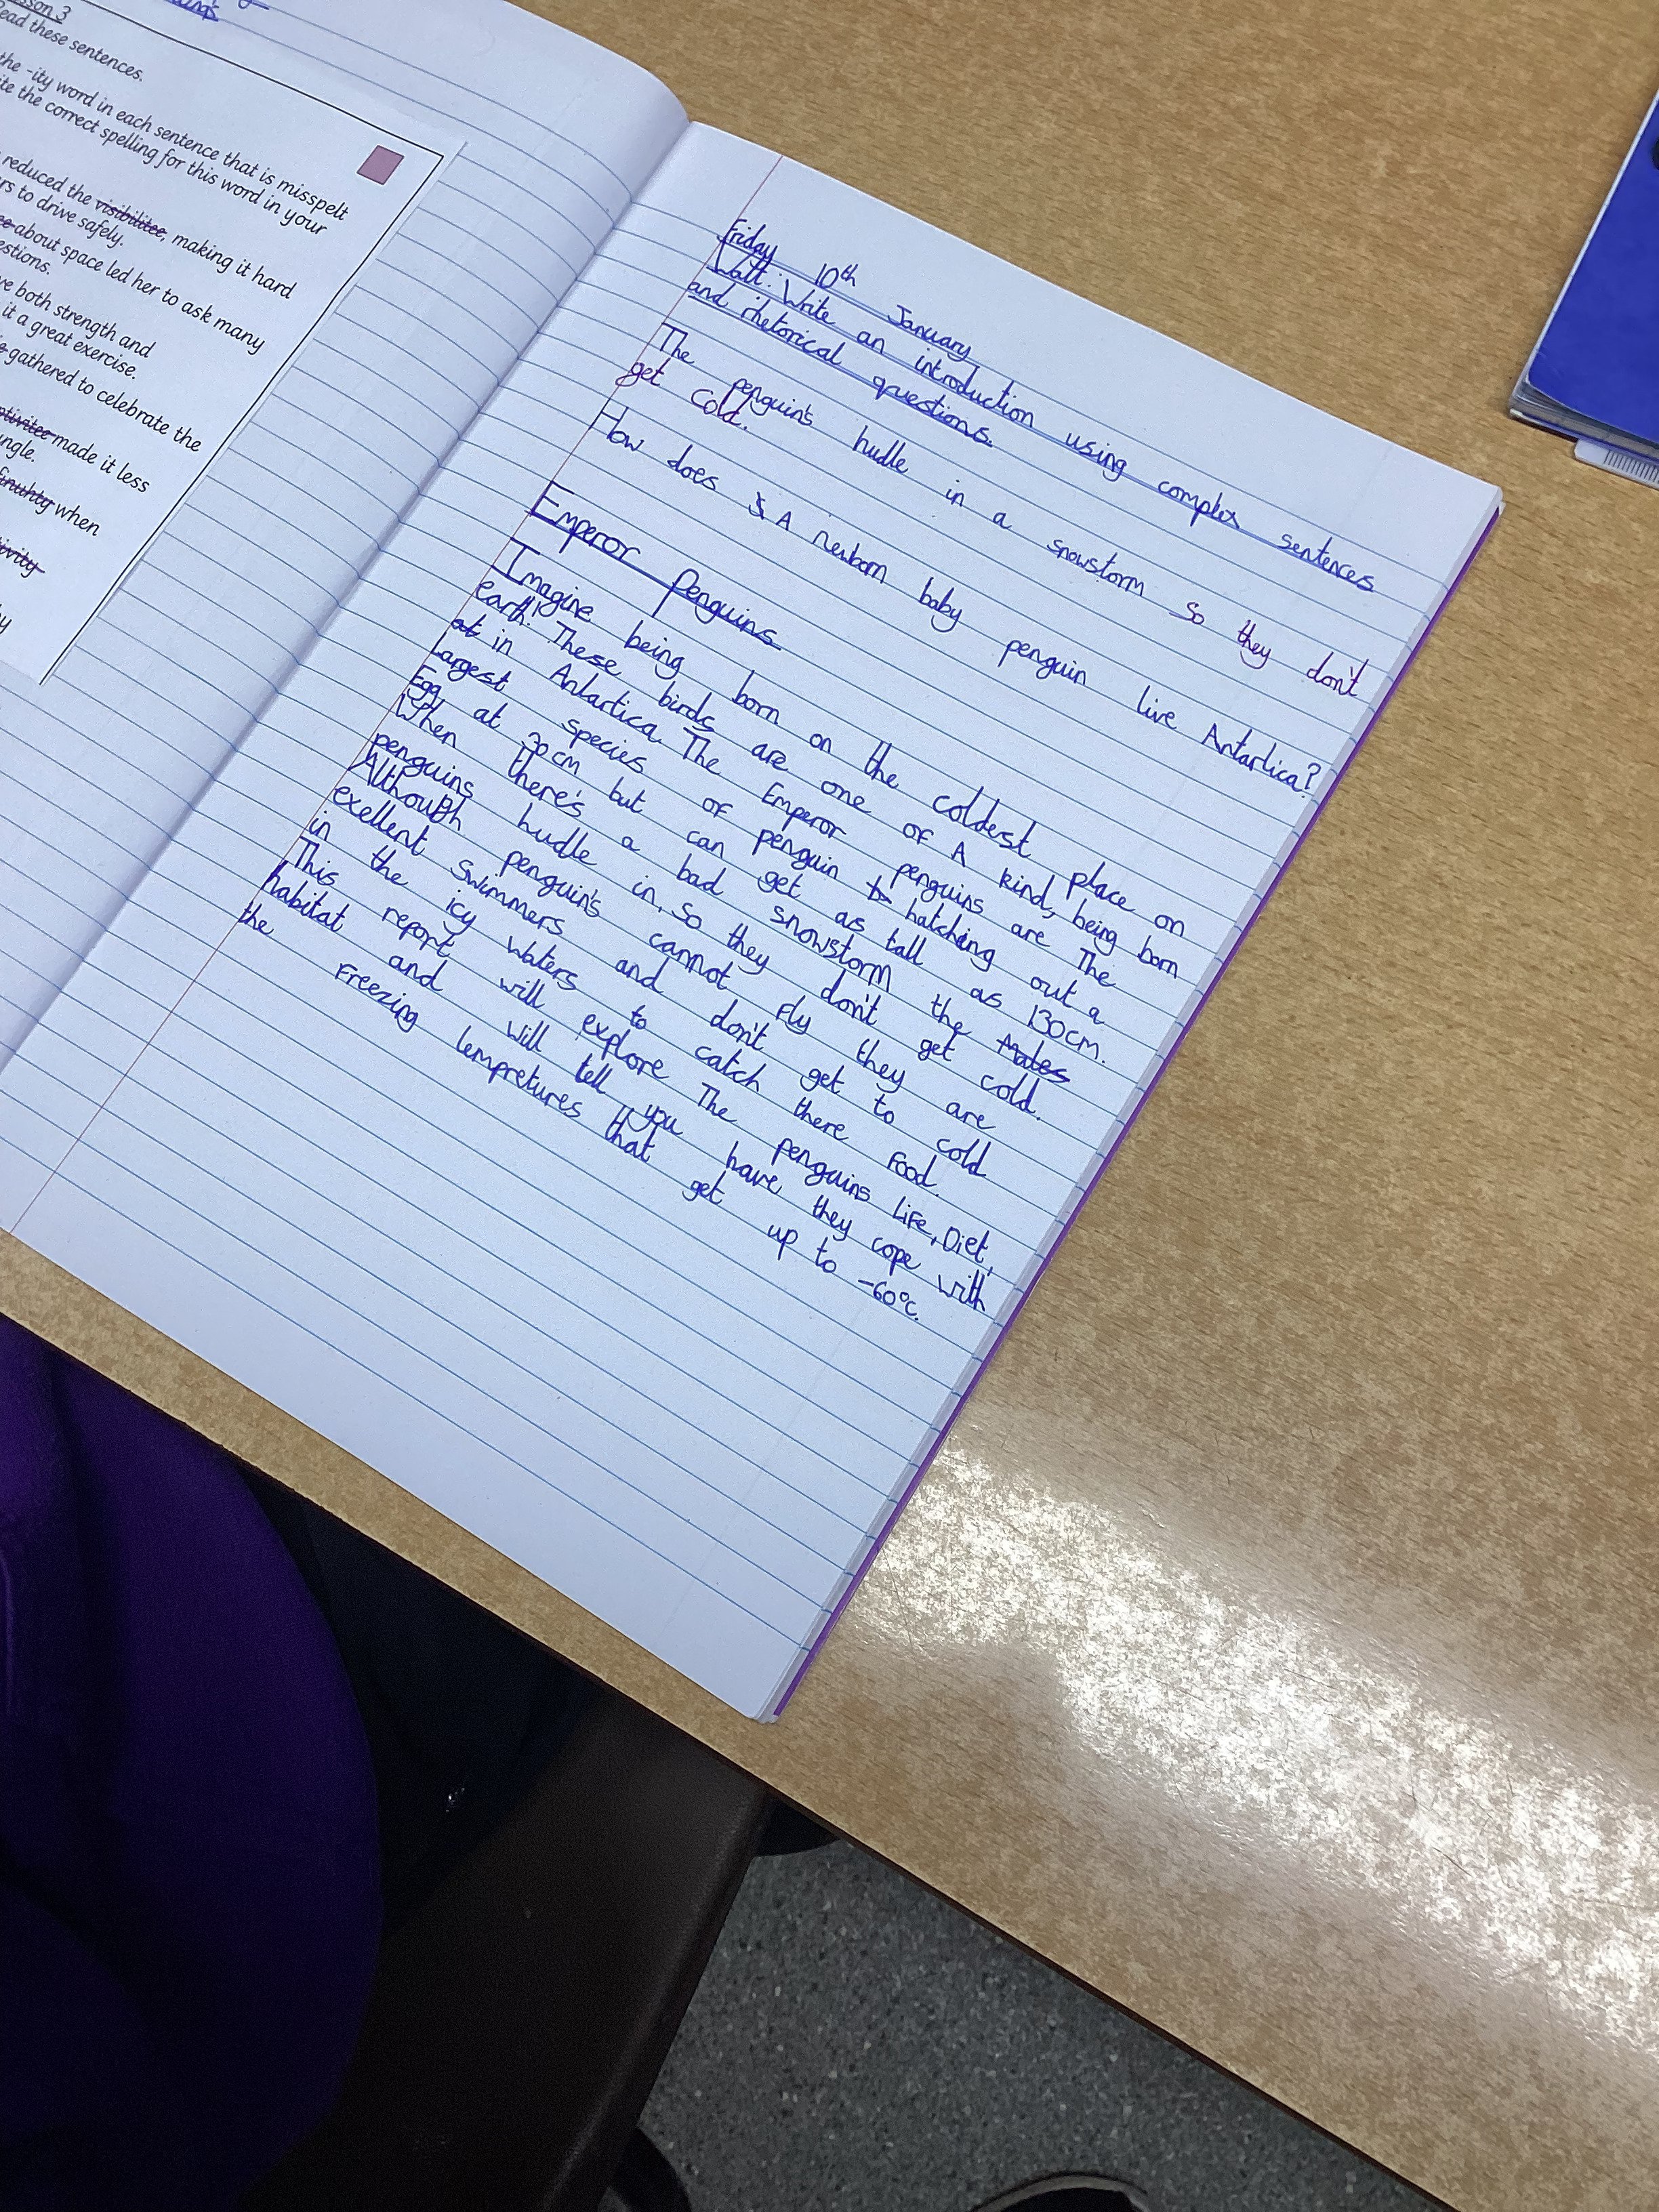 sson 3
Read these sentences.
the -ity word in each sentence that is misspelt
ite the correct spelling for this word in your
reduced the visibilitee, making it hard
rs to drive safely.
about space led her to ask many
estions.
ve both strength and
it a great exercise.
gathered to celebrate the
made it less
ngle.
when
Friday 10th January
Walt: Write an introduction using complex sentences
and rhetorical questions.
The penguin's hudle in a snowstorm so they don't
get cold.
How does A newborn baby penguin live Antartica?
Emperor Penguins
Imagine being born on the coldest place on
earth! These birds are one of A kind, being born
in Antartica. The Emperor penguins are The
Largest species of penguin hatching out a
Egg at 70cm but can get as tall as 130cm.
When there's a bad snowstorm the Mates
penguins hudle in, so they don't get cold.
Although penguin's cannot fly they are
exellent swimmers and don't get to cold
in the icy waters to catch there food.
This report will explore The penguins Life, Diet,
habitat and will tell you have they cope with
the Freezing tempretures that get up to -60°c.